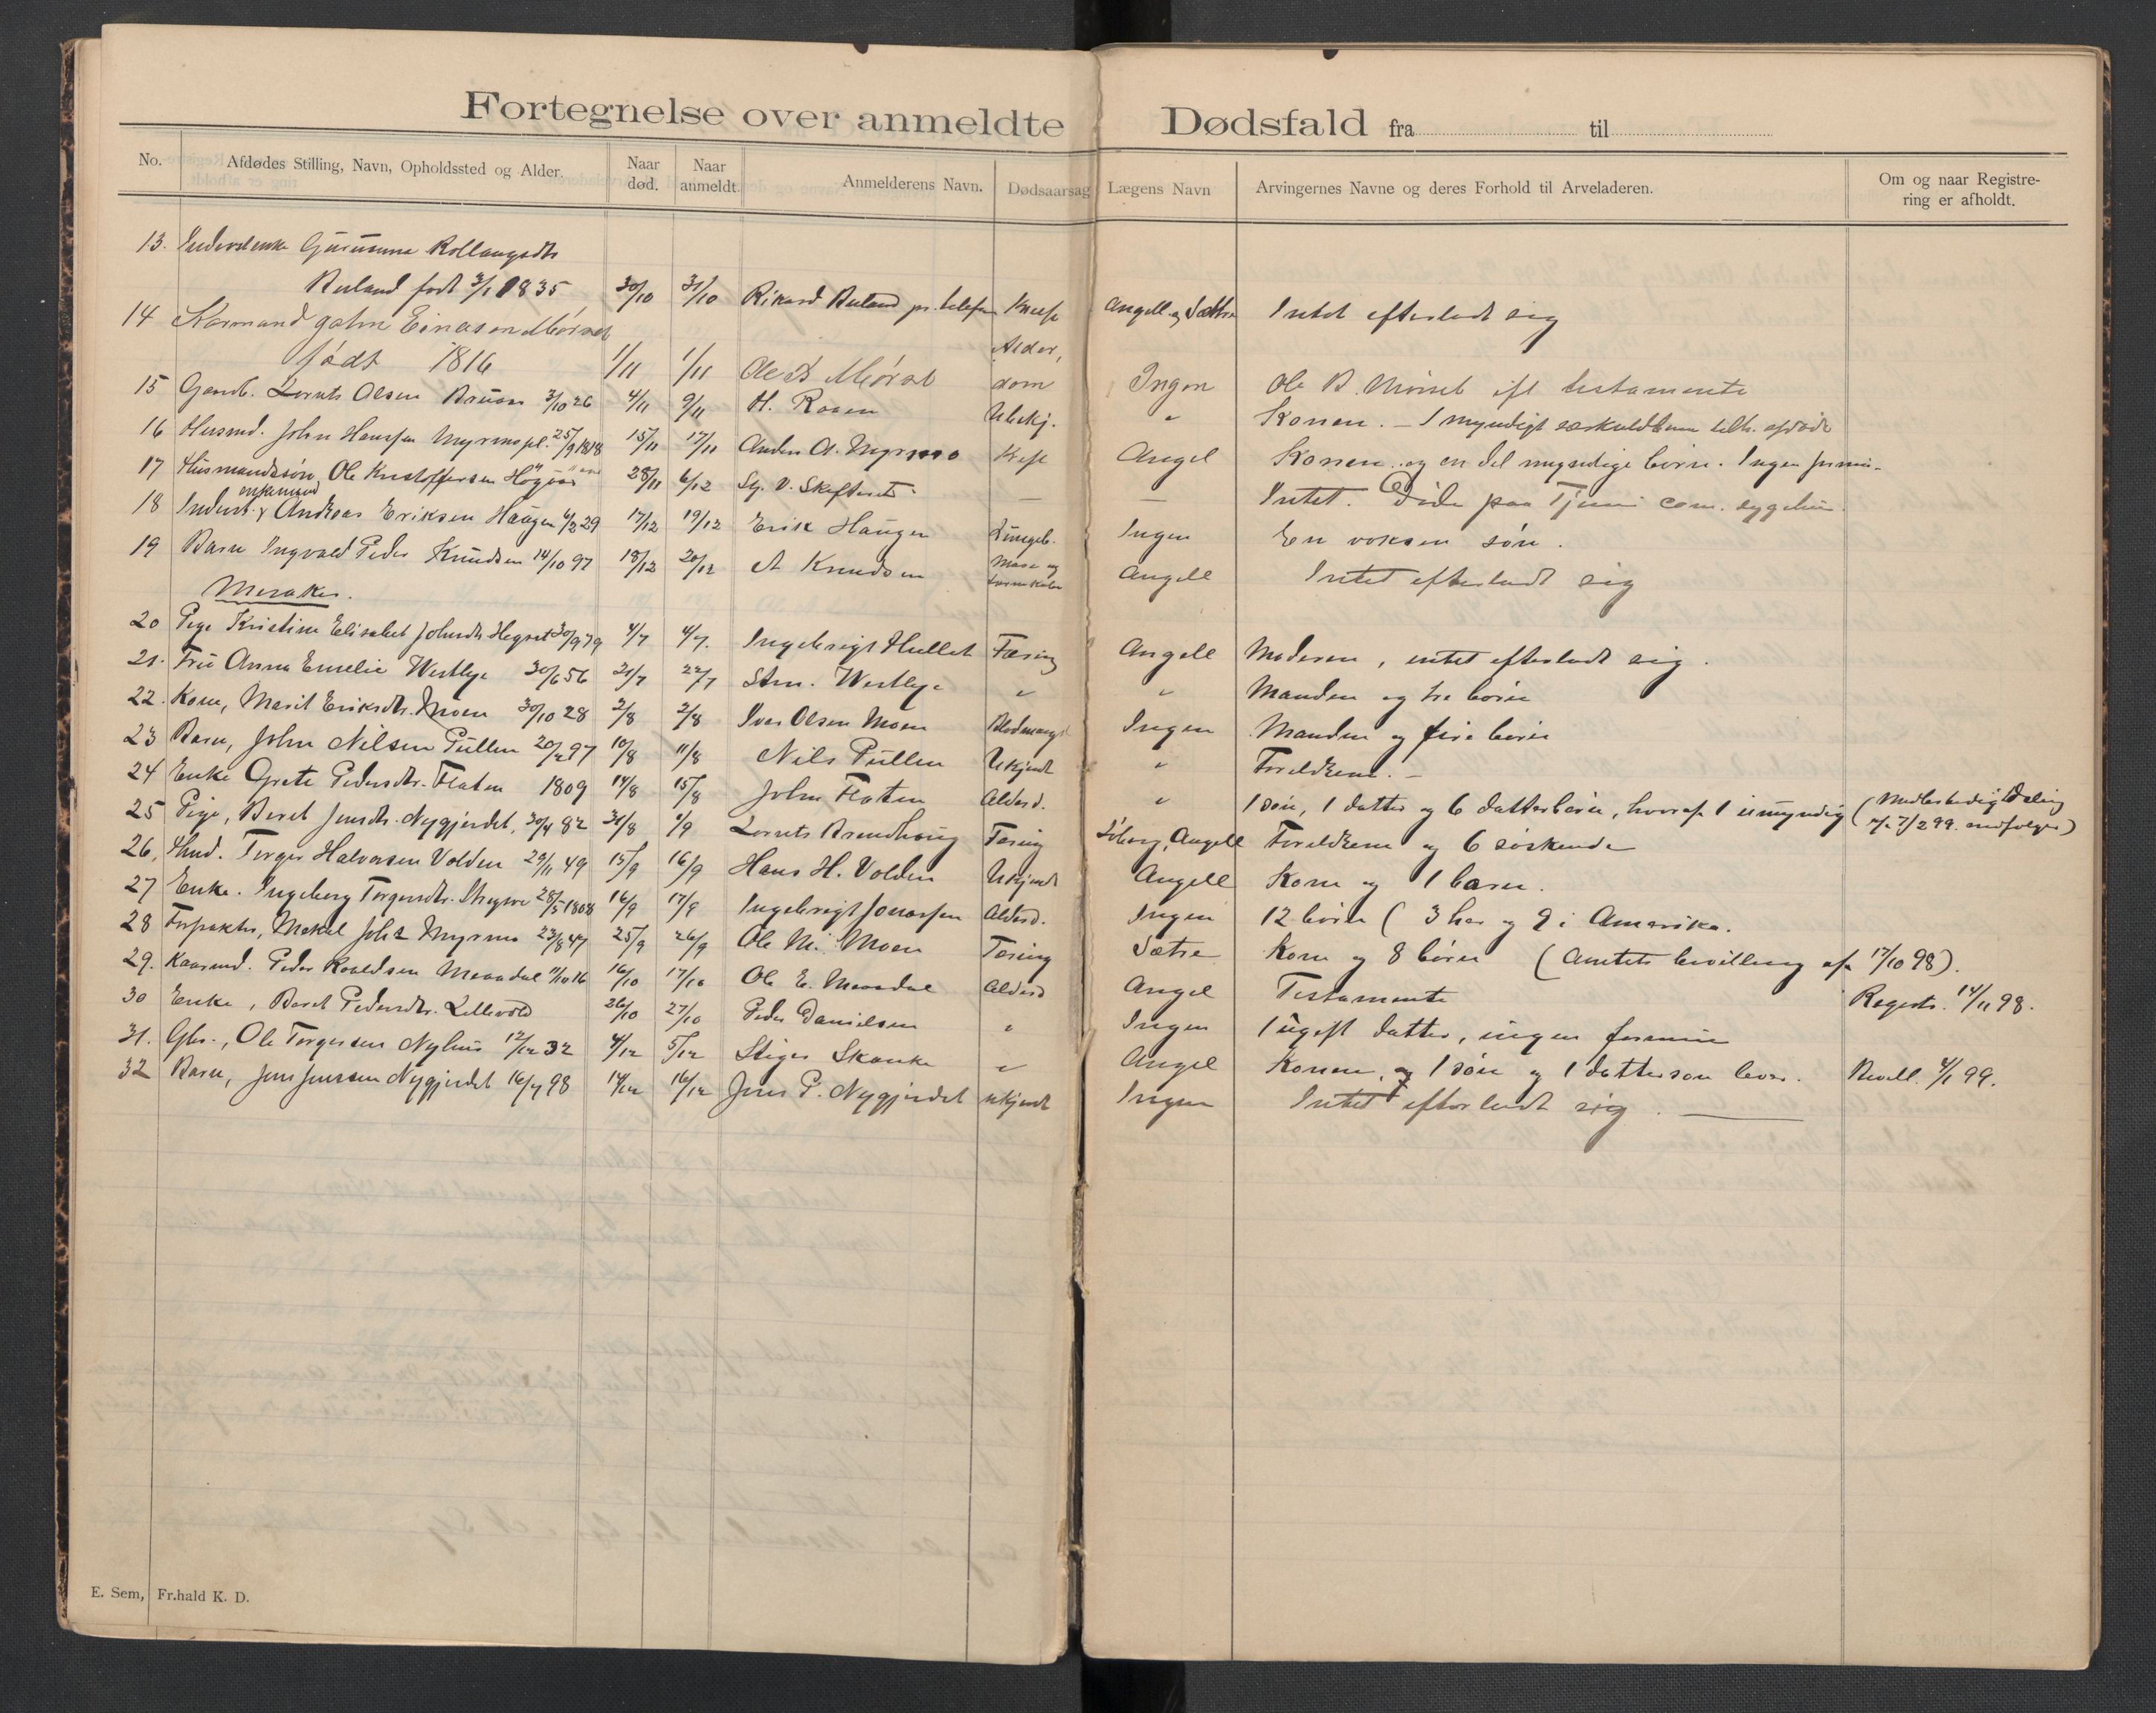 Fortegnelse over anmeldte Dødsfald fra til
No. Afdødes Stilling, Navn, Opholdssted og Alder. Naar død. Naar anmeldt. Anmelderens Navn. Dødsaarsag Lægens Navn Arvingernes Navne og deres Forhold til Arveladeren. Om og naar Registrering er afholdt.
13. Inderstenke
født 3/1 1835 30/10 31/10 Rikard pr. telefon Angell og Sætre Intet efterladt sig
14 Kaarmand Einarsen Mörset Alder,
født 1816 1/11 1/11 Ole B. Mörset dom Ingen Ole B. Mörset ifl testamente
15 Gaardb. Lornts Olsen Bruas 3/10 26 4/11 9/11 H. Rosen Ubekj. " Konen. – 1 myndigt særkuldbarn
16 Husmd. John Hansen Myrmopl. 25/9 1818 15/11 17/11 Anders A. Myrmo Angel Konen og en del myndige börn. Ingen
17 Husmandssön Ole Kristoffersen 28/11 6/12 — — Intet. Döde paa com. sygehus
18 Inderst. enkemand Andreas Eriksen Haugen 6/2 29 17/12 19/12 Erik Haugen Lungeb. Ingen En voksen sön.
19 Barn Ingvald Peder Knudsen 14/10 97 18/12 20/12 A Knudsen Angell Intet efterladt sig
Meraker.
20 Pige Kristine Elisabet Johnsdtr. Hegset 30/9 79 4/7 4/7. Ingebrigt Hullet Tæring Angell Moderen, intet efterladt sig.
21. Fru Anna Emelie Westlye 30/6 56 21/7 22/7 Stm. Westlye " " Manden og tre börn
22. Kone, Marit Eriksdtr. Moen 30/10 28 2/8 2/8 Iver Olsen Moen Blodmangel Ingen Manden og fire börn
23 Barn, John Nilsen Pullen 20/2 97 10/8 11/8 Nils Pullen Ukjendt " Foreldrene. –
24 Enke Grete Pedersdtr. Flaten 1809 14/8 15/8 John Flaten Alderd. " 1 sön, 1 datter og 6 datterbörn, hvoraf 1 umyndig (
25 Pige, Beret Jensdtr. Nygjerdet, 30/4 82 31/8 1/9 Lornts Brendhaug Tæring Solberg, Angell Foreldrene og 6 söskende
26. Hmd. Torger Halvorsen Volden 29/11 49 15/9 16/9 Hans H. Volden Ukjendt Angell Kone og 1 barn.
27 Enke. Ingeborg Torgersdtr. 28/5 1808 16/9 17/9 Ingebrigt Jonassen Alderd. Ingen 12 börn ( 3 her og 9 i Amerika.
28 Forpakter, Mekal Johs Myrmo 23/8 47 25/9 26/9 Ole M. Moen Tæring Sætre Kone og 8 börn (Amtets bevilling af 17/10 98).
29. Kaarmd. Peder Roaldsen Meradal 11/10 16 16/10 17/10 Ole E. Meradal Alderd Angel Testamente Registr. 14/11 98.
30 Enke, Beret Pedersdtr. Lillevold 26/10 27/10 Peder Danielsen " Ingen 1 ugift datter, ingen formue
31. Gbr., Ole Torgersen Nyhus 12/12 32 4/12 5/12 Stiger Skanke " Angel Konen, og 1 sön og 1 dattersön lever. Bevill. 4/1 99.
32 Barn, Jens Jenssen Nygjerdet 16/7 98 14/12 16/12 Jens P. Nygjerdet Ukjendt Ingen Intet efterladt sig. —
E. Sem, Fr.hald K. D.